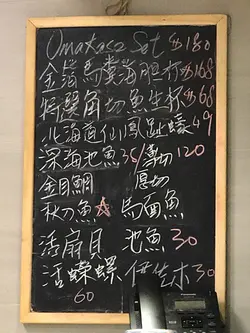 Omakase Set $180
金箔馬糞海胆杯$168
特選角切魚生杯$68
北海道仙鳳趾蠔49
深海池魚35/薄切120
金目鯛 厚切
秋刀魚☆ 馬面魚
活扇貝 池魚30
活蠑螺 伊佐木30
60